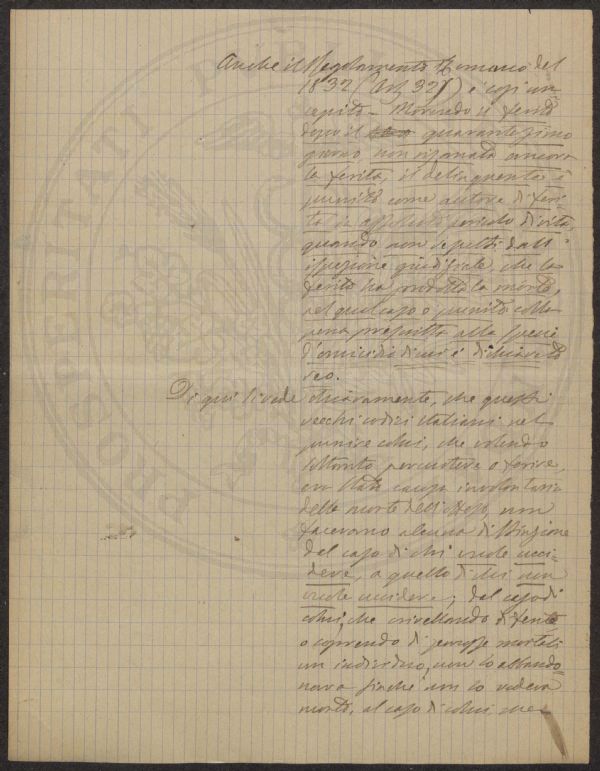 Anche il Regolamento Romano del
1832 (Art. 327) è così con-
cepito - Morendo il ferito
dopo il quarantesimo
giorno, non risanata ancora
la ferita, il delinquente è
punito come autore di feri-
ta di assoluto pericolo di vita,
quando non risulti dall'
ispezione giudiziale, che la
ferita ha prodotto la morte,
nel qual caso è punito colla
pena prescritta alla specie
d'omicidio di cui è dichiarato
reo.
Di qui si vede chiaramente, che questi
vecchi codici italiani nel
punire colui, che volendo
soltanto percuotere o ferire,
era stato causa involontaria
della morte dell'offeso, non
facevano alcuna distinzione
dal caso di chi vuole ucci-
dere, a quello di chi non
vuole uccidere; dal caso di
colui, che crivellando di ferite
o coprendo di percosse mortali
un individuo, non lo abbando-
nava finché non lo vedeva
morto, al caso di colui, che
PROSPERITATI